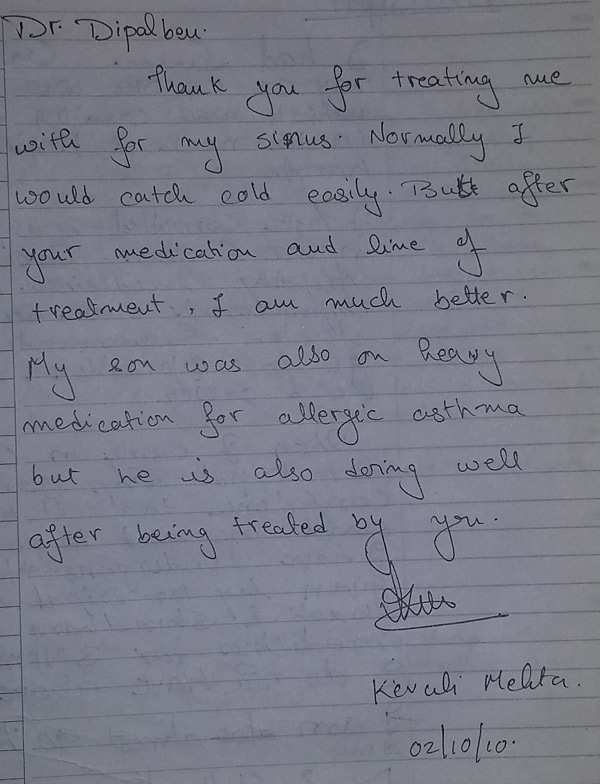 Dr. Dipalben.
Thank you for treating me
with for my sinus. Normally I
would catch cold easily. But after
your medication and line of
treatment, I am much better.
My son was also on heavy
medication for allergic asthma
but he is also doring well
after being treated by you.
Kevali Mehta.
02/10/10.